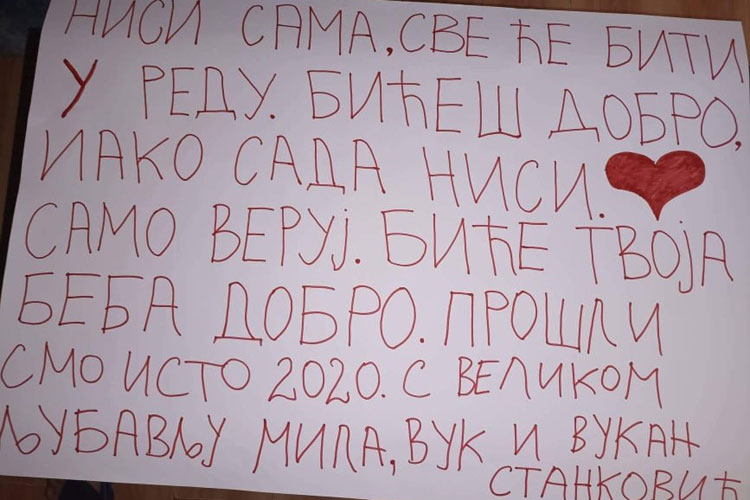 НИСИ САМА, СВЕ ЋЕ БИТИ
У РЕДУ. БИЋЕШ ДОБРО,
ИАКО САДА НИСИ.
САМО ВЕРУЈ. БИЋЕ ТВОЈА
БЕБА ДОБРО. ПРОШЛИ
СМО ИСТО 2020. С ВЕЛИКОМ
ЉУБАВЉУ МИЛА, ВУК И ВУКАН
СТАНКОВИЋ